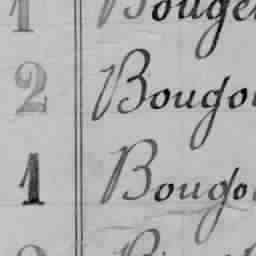 1 Bouge
2 Bougo
1 Bougo